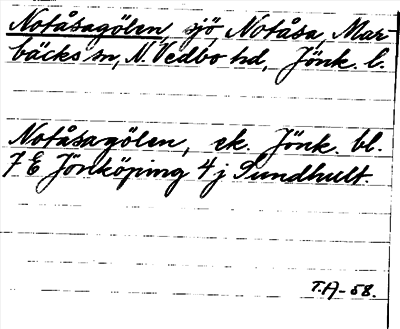 Notåsagölen, sjö, Notåsa, Mar-
bäcks sn, N. Vedbo hd, Jönk. l.
Notåsagölen, ek. Jönk. bl.
7 E Jönköping 4 j Sundhult.
T.A-58.